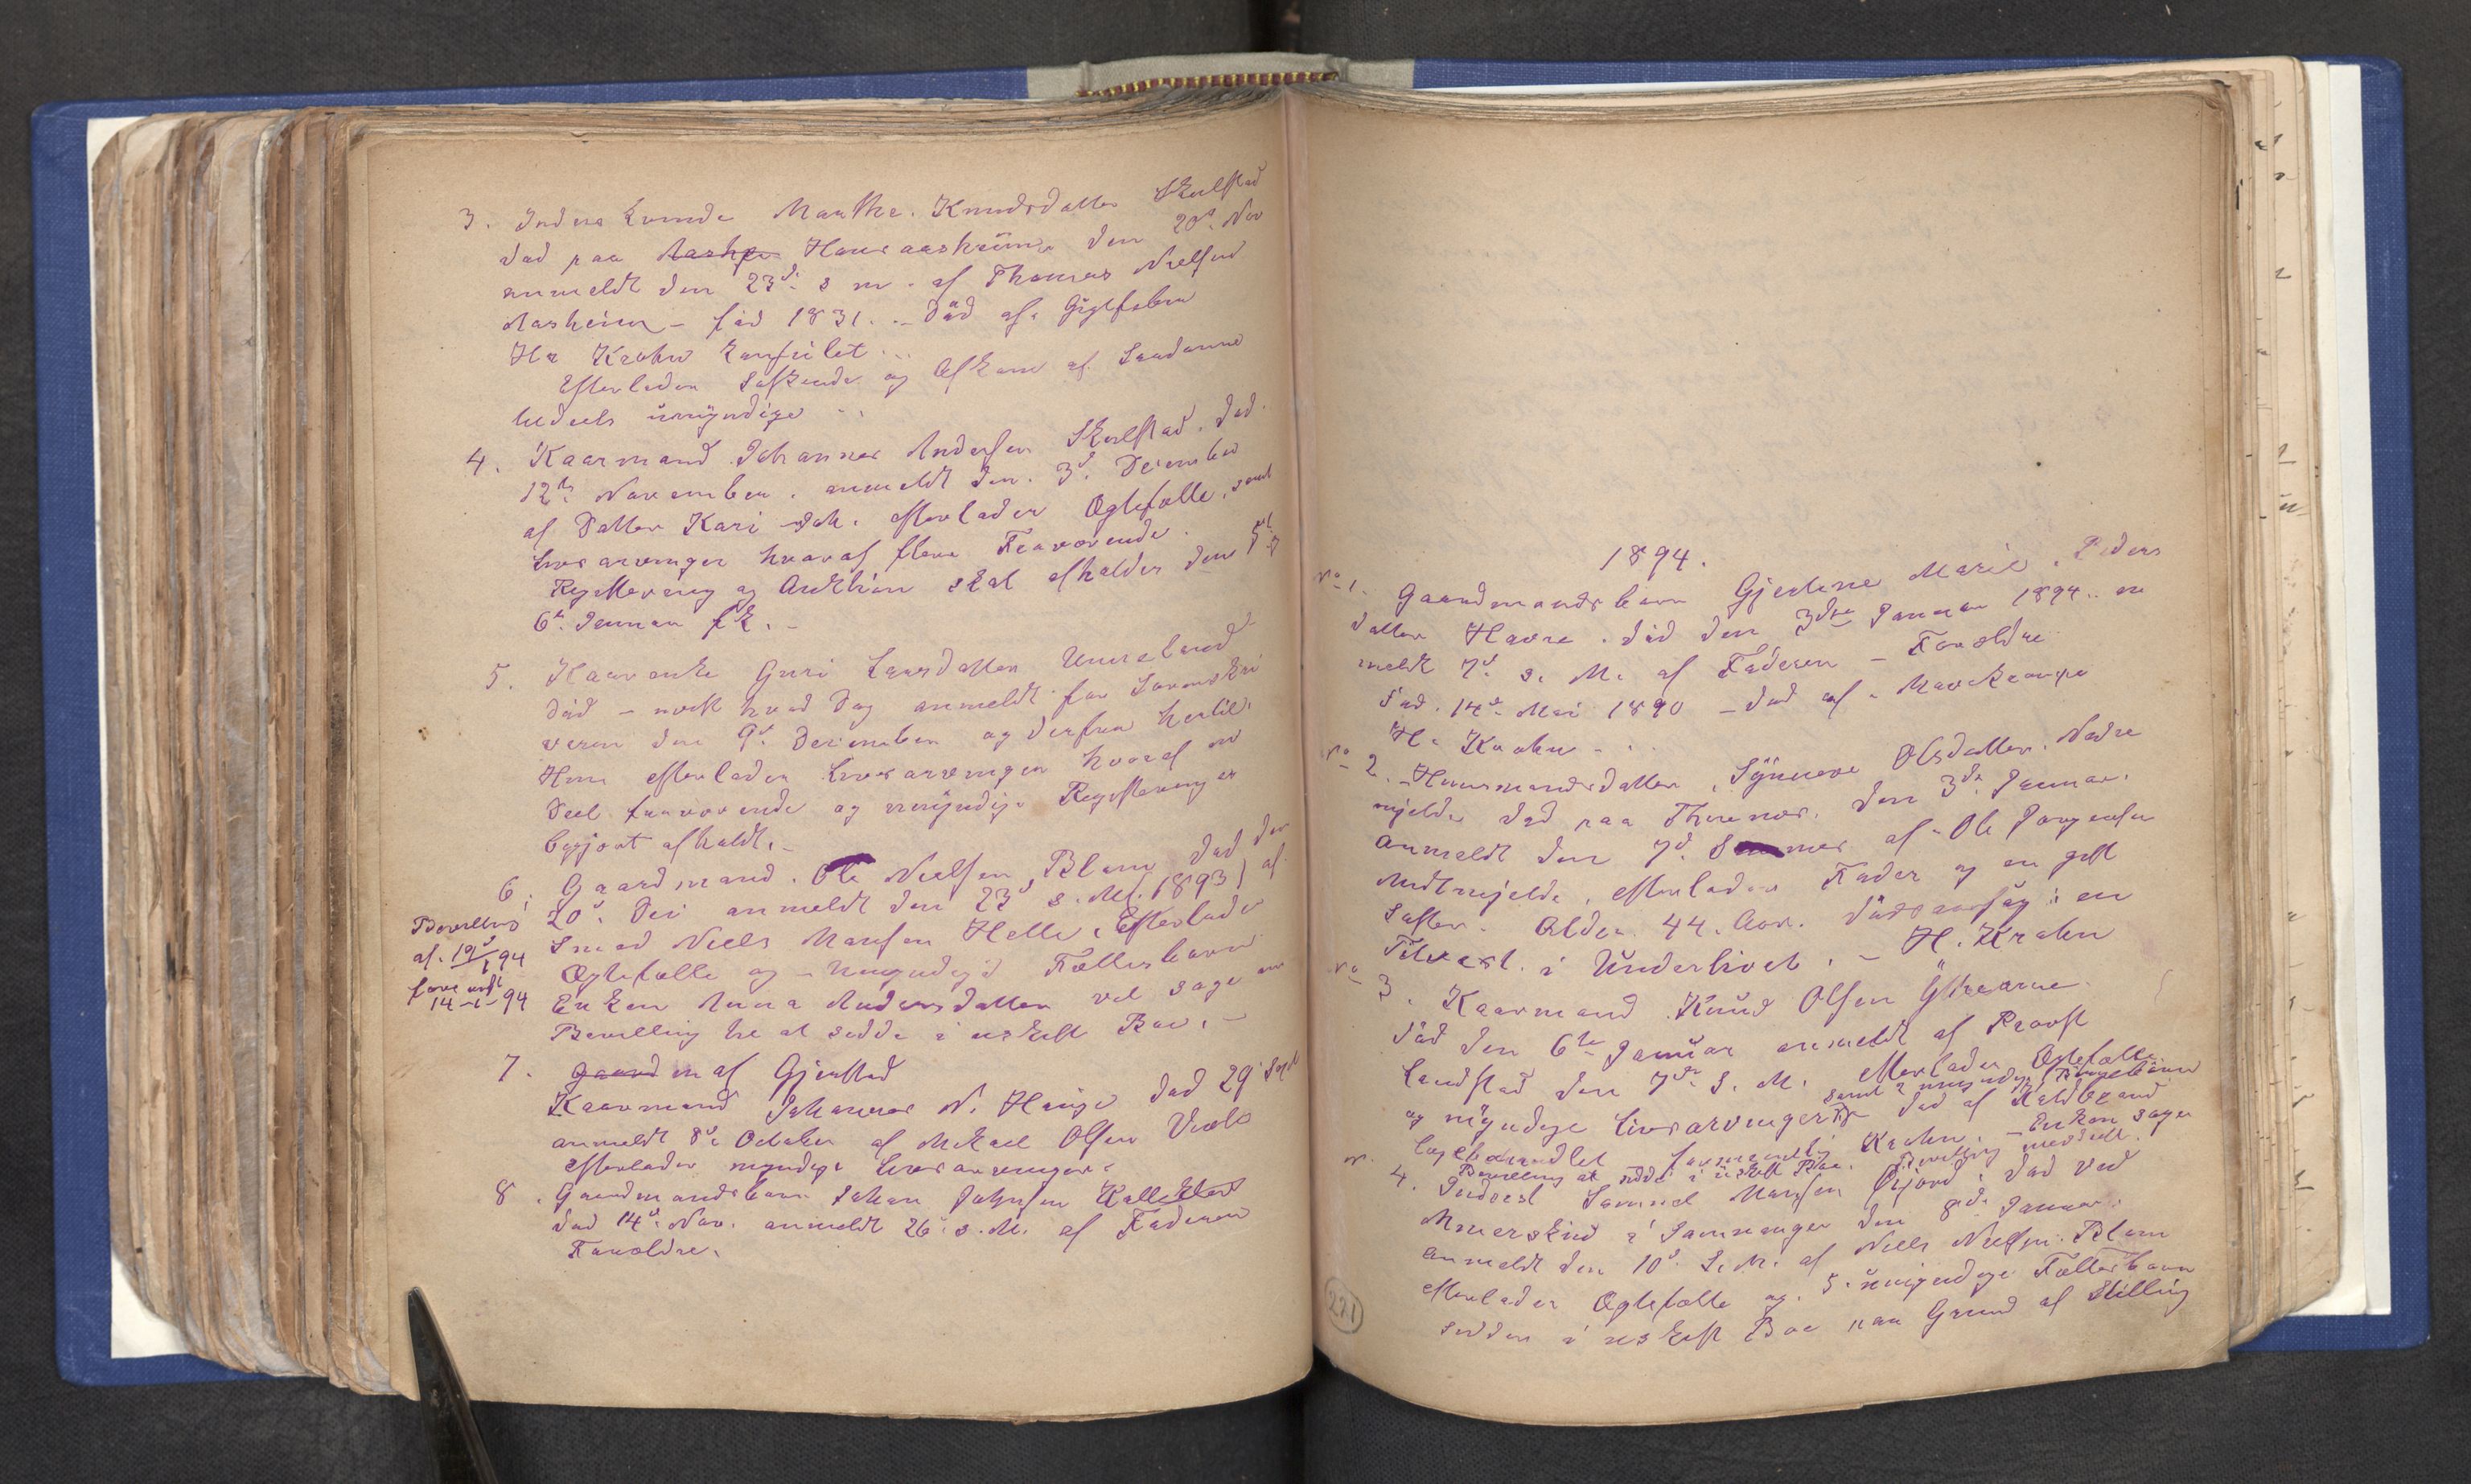 3. Inderst Kvinde Marthe Knudsdatter Skulstad
død paa Hausaasheim den 20d. Nov
anmeldt den 23d. s m. af Thomas Nielsen
Aasheim – fød 1831. – død af Gigtfeber
Hr Krohn
Efterlader Søskende og Afkom af Saadanne
tildeels umyndige
4. Kaarmand Johannes Andersen Skulstad. død
12te November. anmeldt den 3d. December
af Datter Kari Joh. efterlader Ægtefælle, samt
Livsarvinger hvoraf flere Fraværende.
Registrering og Auktion skal afholdes den 5te
6te Januar
5. Kaarenke Guri Larsdatter Unneland
død – anmeldt for Sorenskri
veren den 9d. December og derfra
Hun efterlader Livsarvinger hvoraf en
Deel fraværende og umyndige Registrering er
begjært afholdt. –
6. Gaardmand. Ole Nielsen, Blom død den
20d. Dec anmeldt den 23d s. M. 1893) af
Niels Monsen Helle, Efterlader
Ægtefælle og – Umyndige Fællesbørn
Enken Anna Andersdatter vil søge om
Bevilling til at sidde i uskift Boe. –
Bevillet
af. 19/1 94
14-1-94
7. en af Gjerstad
Kaarmand Johannes N. Hauge død 29 Sept
anmeldt 8de October af Mikael Olsen
efterlader myndige Livsarvinger.
8. Gaardmandsbarn Johan Johnsen
død 14d. Nov. anmeldt 26d. s. M. af Faderen
Forældre.
1894.
No 1. Gaardmandsbarn Gjertine Marie. Peders
datter Havre. død den 3die Januar 1894. an
meldt 7d. s. M. af Faderen – Forældre
Fød. 14d. Mai 1890 – død af
H. Krohn –
No 2. Huusmandsdatter, Synneve Olsdatter. Nedre
mjelde død paa den 3de. Januar.
anmeldt den 7d. af Ole Jørgensen
efterlader Fader og en gift
Søster. Alder. 44. Aar. Dødsaarsag: en
Tilvext i Underlivet. – H. Krohn
No 3. Kaarmand Knud Olsen
død den 6te Januar anmeldt af Provst
Landstad den 7de. s. M. efterlader Ægtefælle
samt
og myndige Livsarvinger død af Koldbrand
lægebehandlet Krohn. – Enken søger
Bevilling at sidde i uskift Boe. Bevilling meddelt.
4. Inderst Samuel Monsen død ved
i Samnanger den 8d. Januar.
anmeldt den 10d. s. M. af Niels Nielsen. Blom
efterlader Ægtefælle og. 5. umyndige Fællesbørn
sidder i uskift Boe paa Grund af Stilling
221